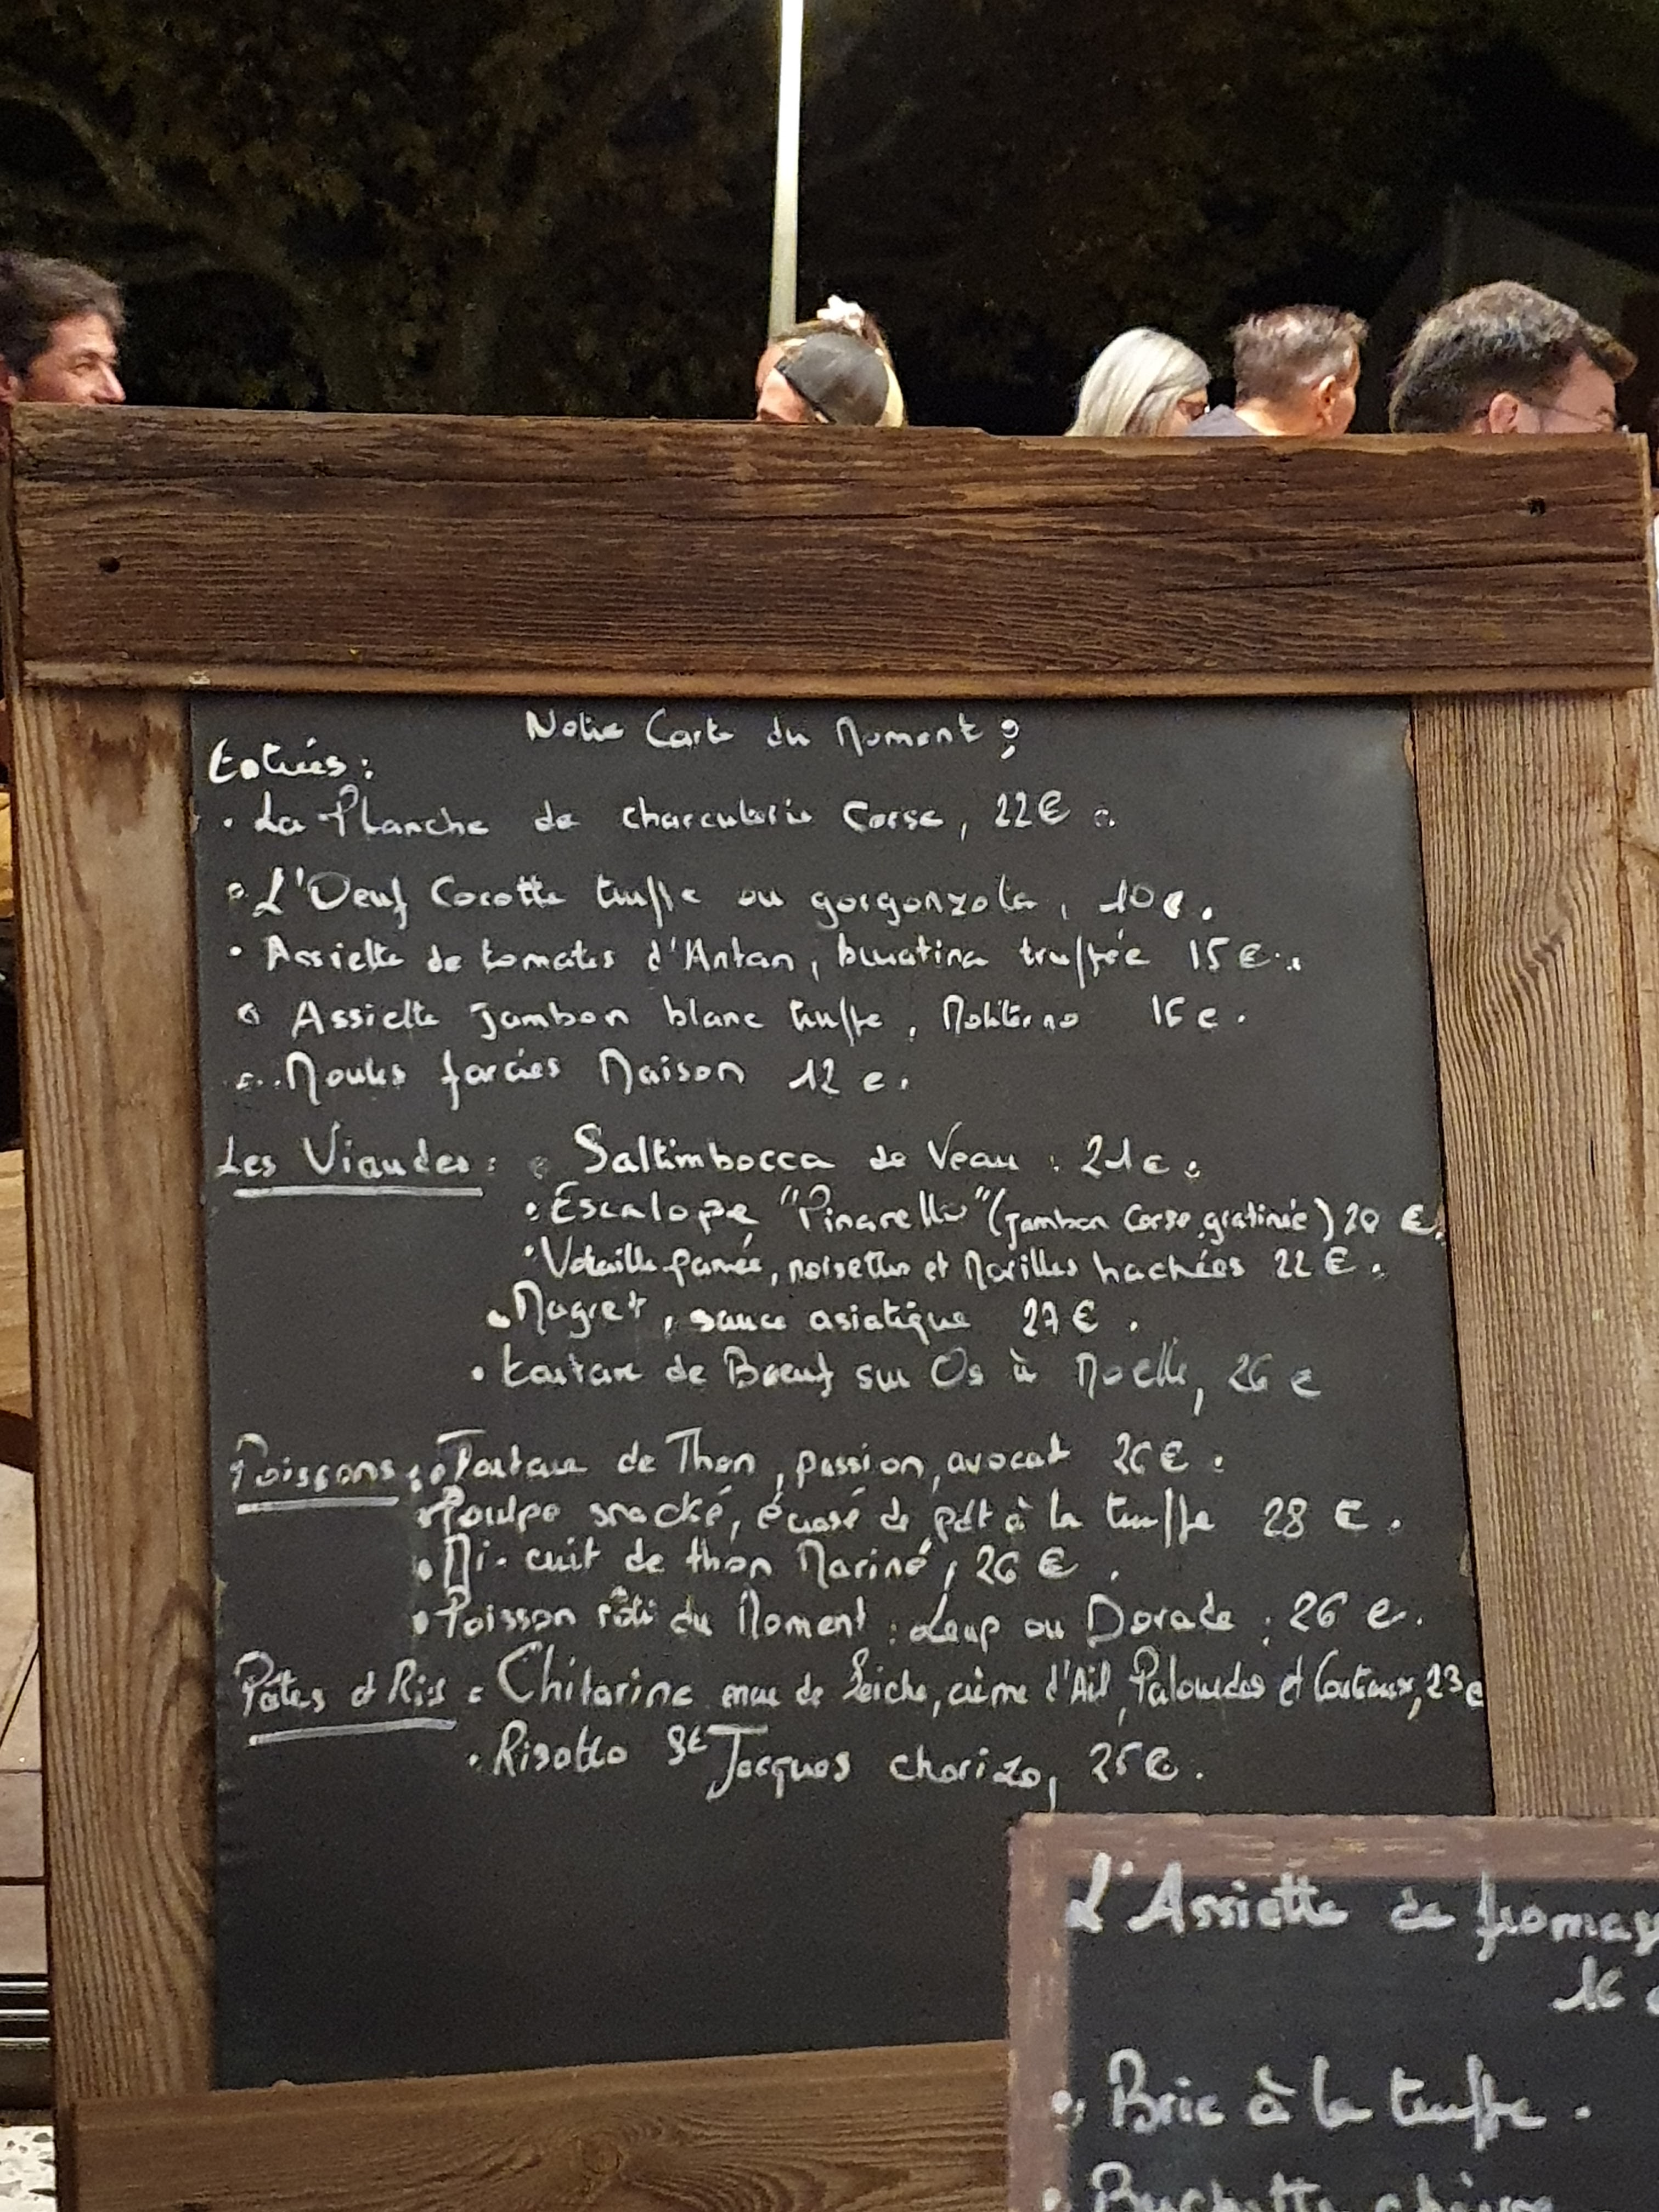 Notre Carte du Moment :
Entrées :
. La Planche de charcuterie Corse, 22€.
. L'Oeuf Cocotte truffe ou gorgonzola, 10€.
. Assiette de tomates d'Antan, burratina truffée 15€.
. Assiette Jambon blanc truffe, Moliterno 16€.
. Moules farcies Maison 12€.
Les Viandes : . Saltimbocca de Veau : 21€.
. Escalope "Pinarello" (Jambon Corse, gratinée) 20 €.
. Volaille panée, noisettes et Morilles hachées 22€.
. Magret, sauce asiatique 27€.
. tartare de Boeuf sur Os à Moelle, 26€
Poissons : . Tartare de Thon, passion, avocat 26€.
. Poulpe snacké, écrasé de pdt à la truffe 28 €.
. Mi-cuit de thon Mariné, 26€.
. Poisson rôti du Moment : Loup ou Dorade : 26€.
Pâtes et Ris : Chitarine encre de Seiche, crème d'Ail, Palourdes et Couteaux, 23€
. Risotto St Jacques chorizo, 25€.
L'Assiette de fromag
16
. Brie à la truffe.